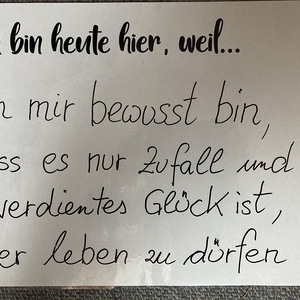 bin heute hier, weil...
mir bewusst bin,
es nur Zufall und
verdientes Glück ist,
leben zu dürfen